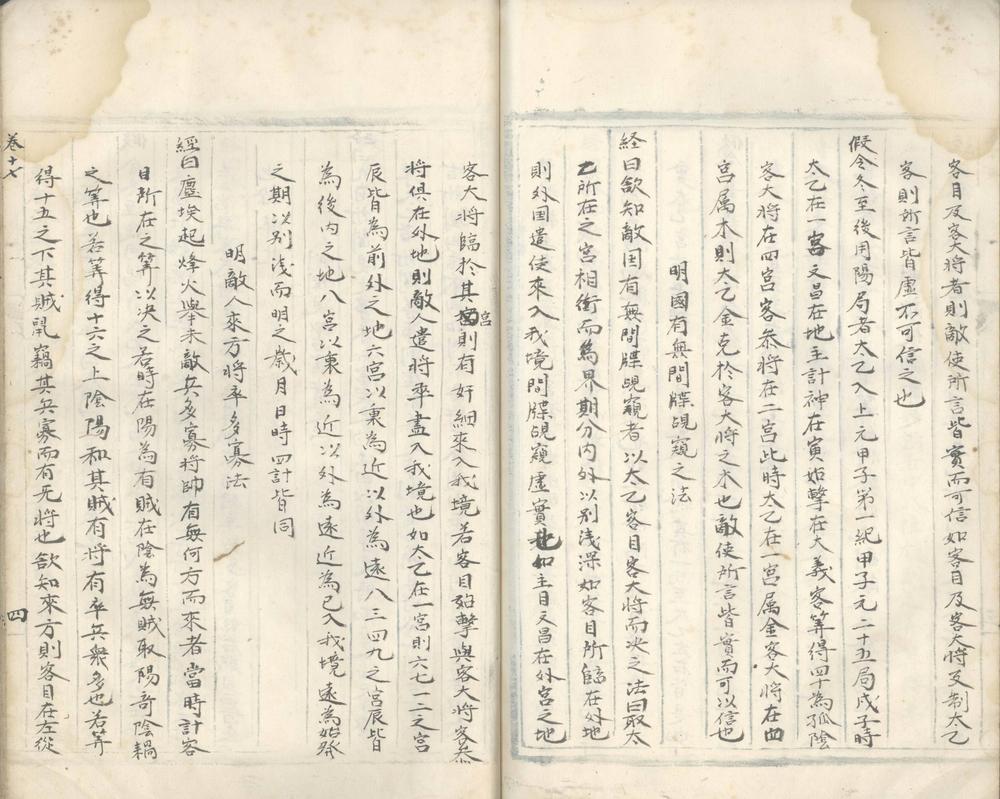 客目及客大將者則敵使所言皆實而可信如客目及客大將反制太乙
客則所言皆虛不可信之也
假令冬至後用陽局者太乙入上元甲子第一紀甲子元二十五局戊子時
太乙在一宮文昌在地主計神在寅始擊在大義客筭得四十為孤陰
客大將在四宮客叅將在二宮此時太乙在一宮属金客大將在四
宮属木則太乙金克於客大將之木也敵使所言皆實而可以信也
明國有無間牒覘窺之法
経曰欲知敵囯有無間牒覘窺者以太乙客目客大將而决之法曰取太
乙所在之宮相衝而為界期分内外以别浅深如客目所臨在外地
則外囯遣使來入我境間牒覘窺虛實也如主目文昌在外宮之地
客大將臨於其宮則有奸細來入我境若客目始擊與客大將客叅
将俱在外地則敵人遣將率盡入我境也如太乙在一宮則六七二之宮
辰皆為前外之地六宮以裏為近以外為遠八三四九之宮辰皆
為後内之地八宮以裏為近以外為遠近為已入我境遠為始發
之期以别浅而明之歲月日時四計皆同
明敵人來方將率多寡法
經曰塵埃起烽火舉未敵兵多寡將帥有無何方而來者當時計客
目所在之筭以决之若時在陽為有賊在陰為無賊取陽奇陰耦
之筭也若筭得十六之上陰陽和其賊有將有率兵衆多也若筭
得十五之下其賊鼠竊其兵寡而有无將也欲知來方則客目在左從
卷十七
四